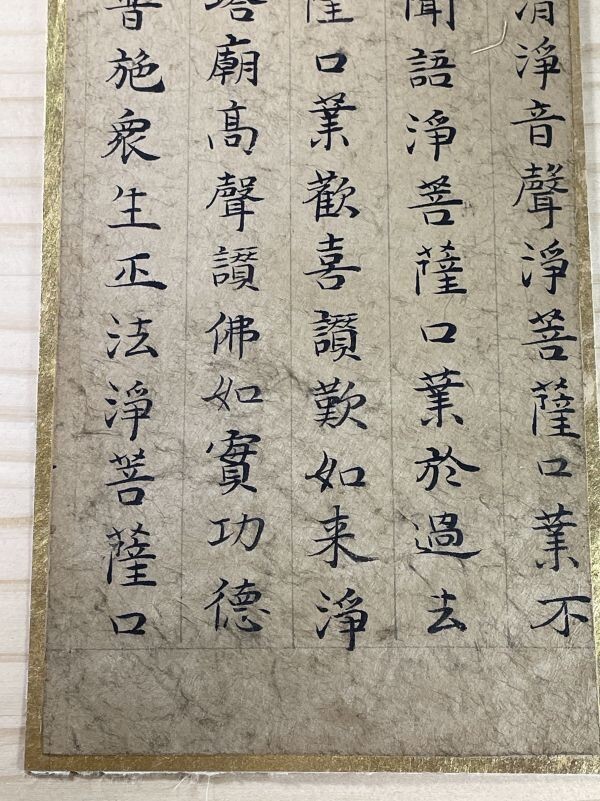 淨音聲淨菩薩口業不
聞語淨菩薩口業於過去
薩口業歡喜讃歎如来淨
塔廟高聲讃佛如實功德
普施衆生正法淨菩薩口